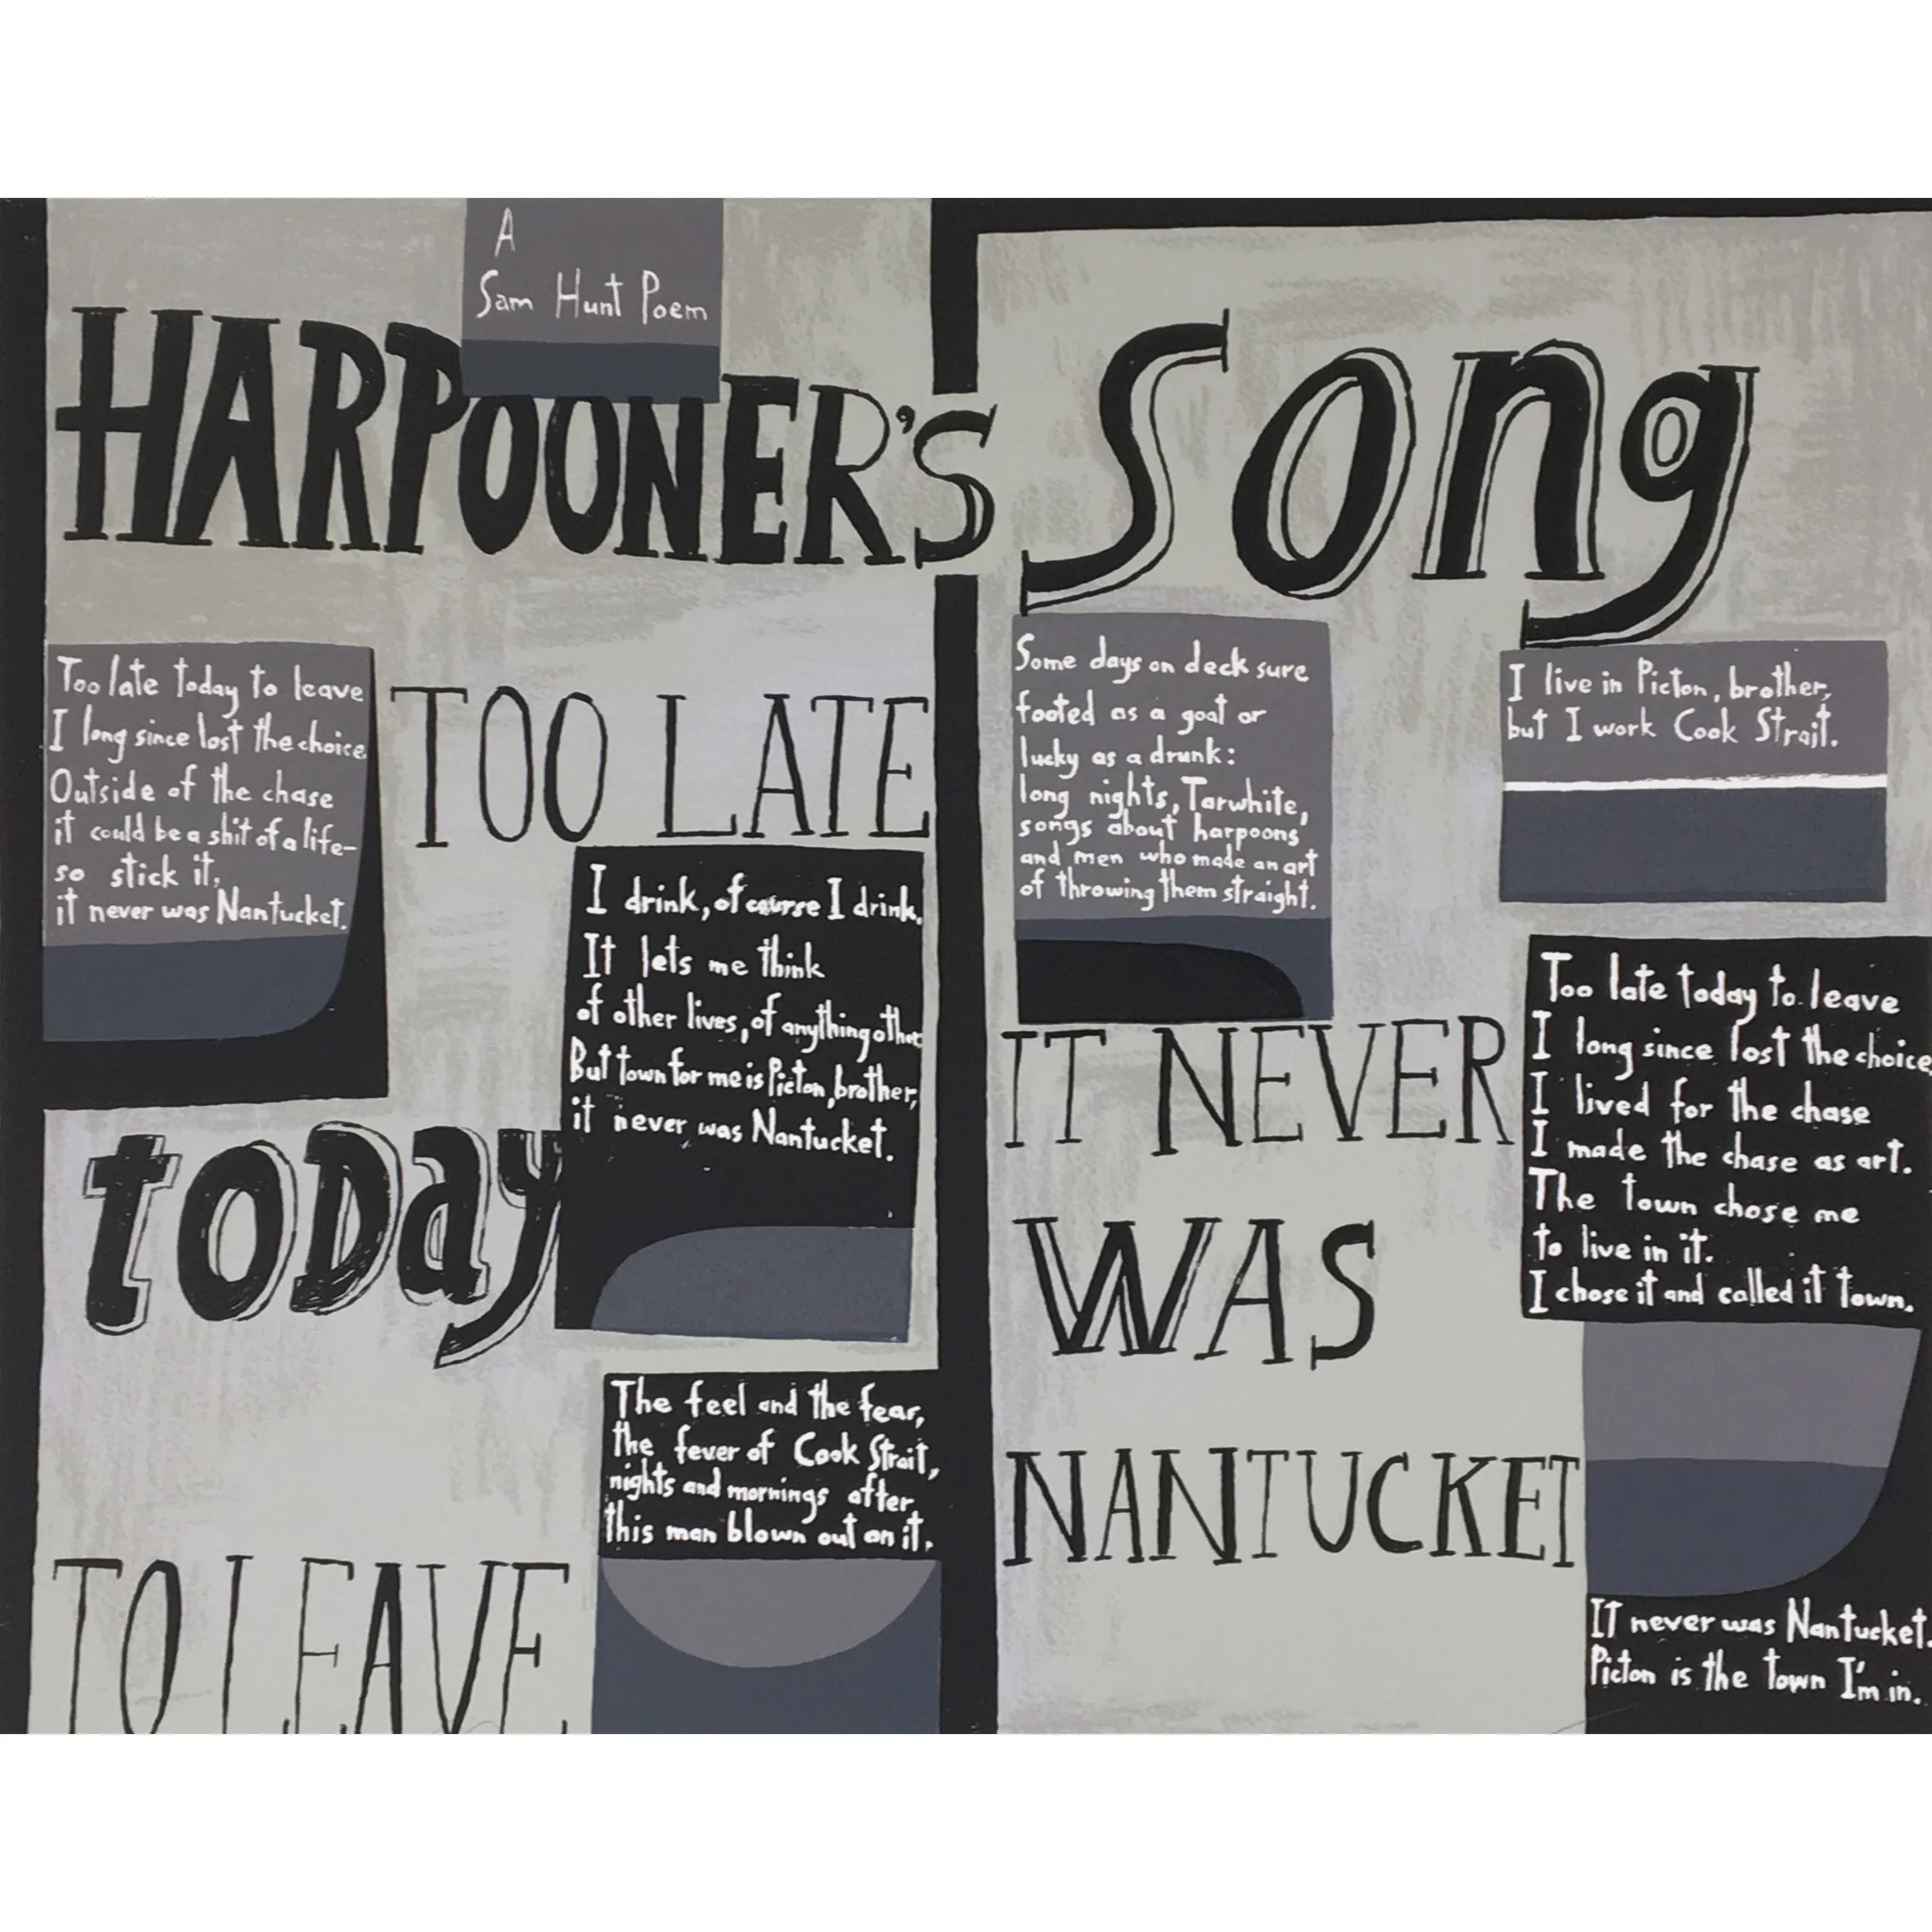 A
Sam Hunt Poem
HARPOONER'S Song
Too late today to leave
I long since lost the choice
Outside of the chase
it could be a shit of a life-
so stick it,
it never was Nantucket.
TOO LATE
I drink, of course I drink.
It lets me think
of other lives, of anything other
But town for me is Picton, brother,
it never was Nantucket.
today
The feel and the fear,
the fever of Cook Strait,
nights and mornings after
this man blown out on it.
TO LEAVE
Some days on deck sure
footed as a goat or
lucky as a drunk:
long nights, Tarwhite,
songs about harpoons
and men who made an art
of throwing them straight.
I live in Picton, brother,
but I work Cook Strait.
IT NEVER
WAS
NANTUCKET
Too late today to leave
I long since lost the choice,
I lived for the chase
I made the chase as art.
The town chose me
to live in it.
I chose it and called it town.
IT never was Nantucket.
Picton is the town I'm in.